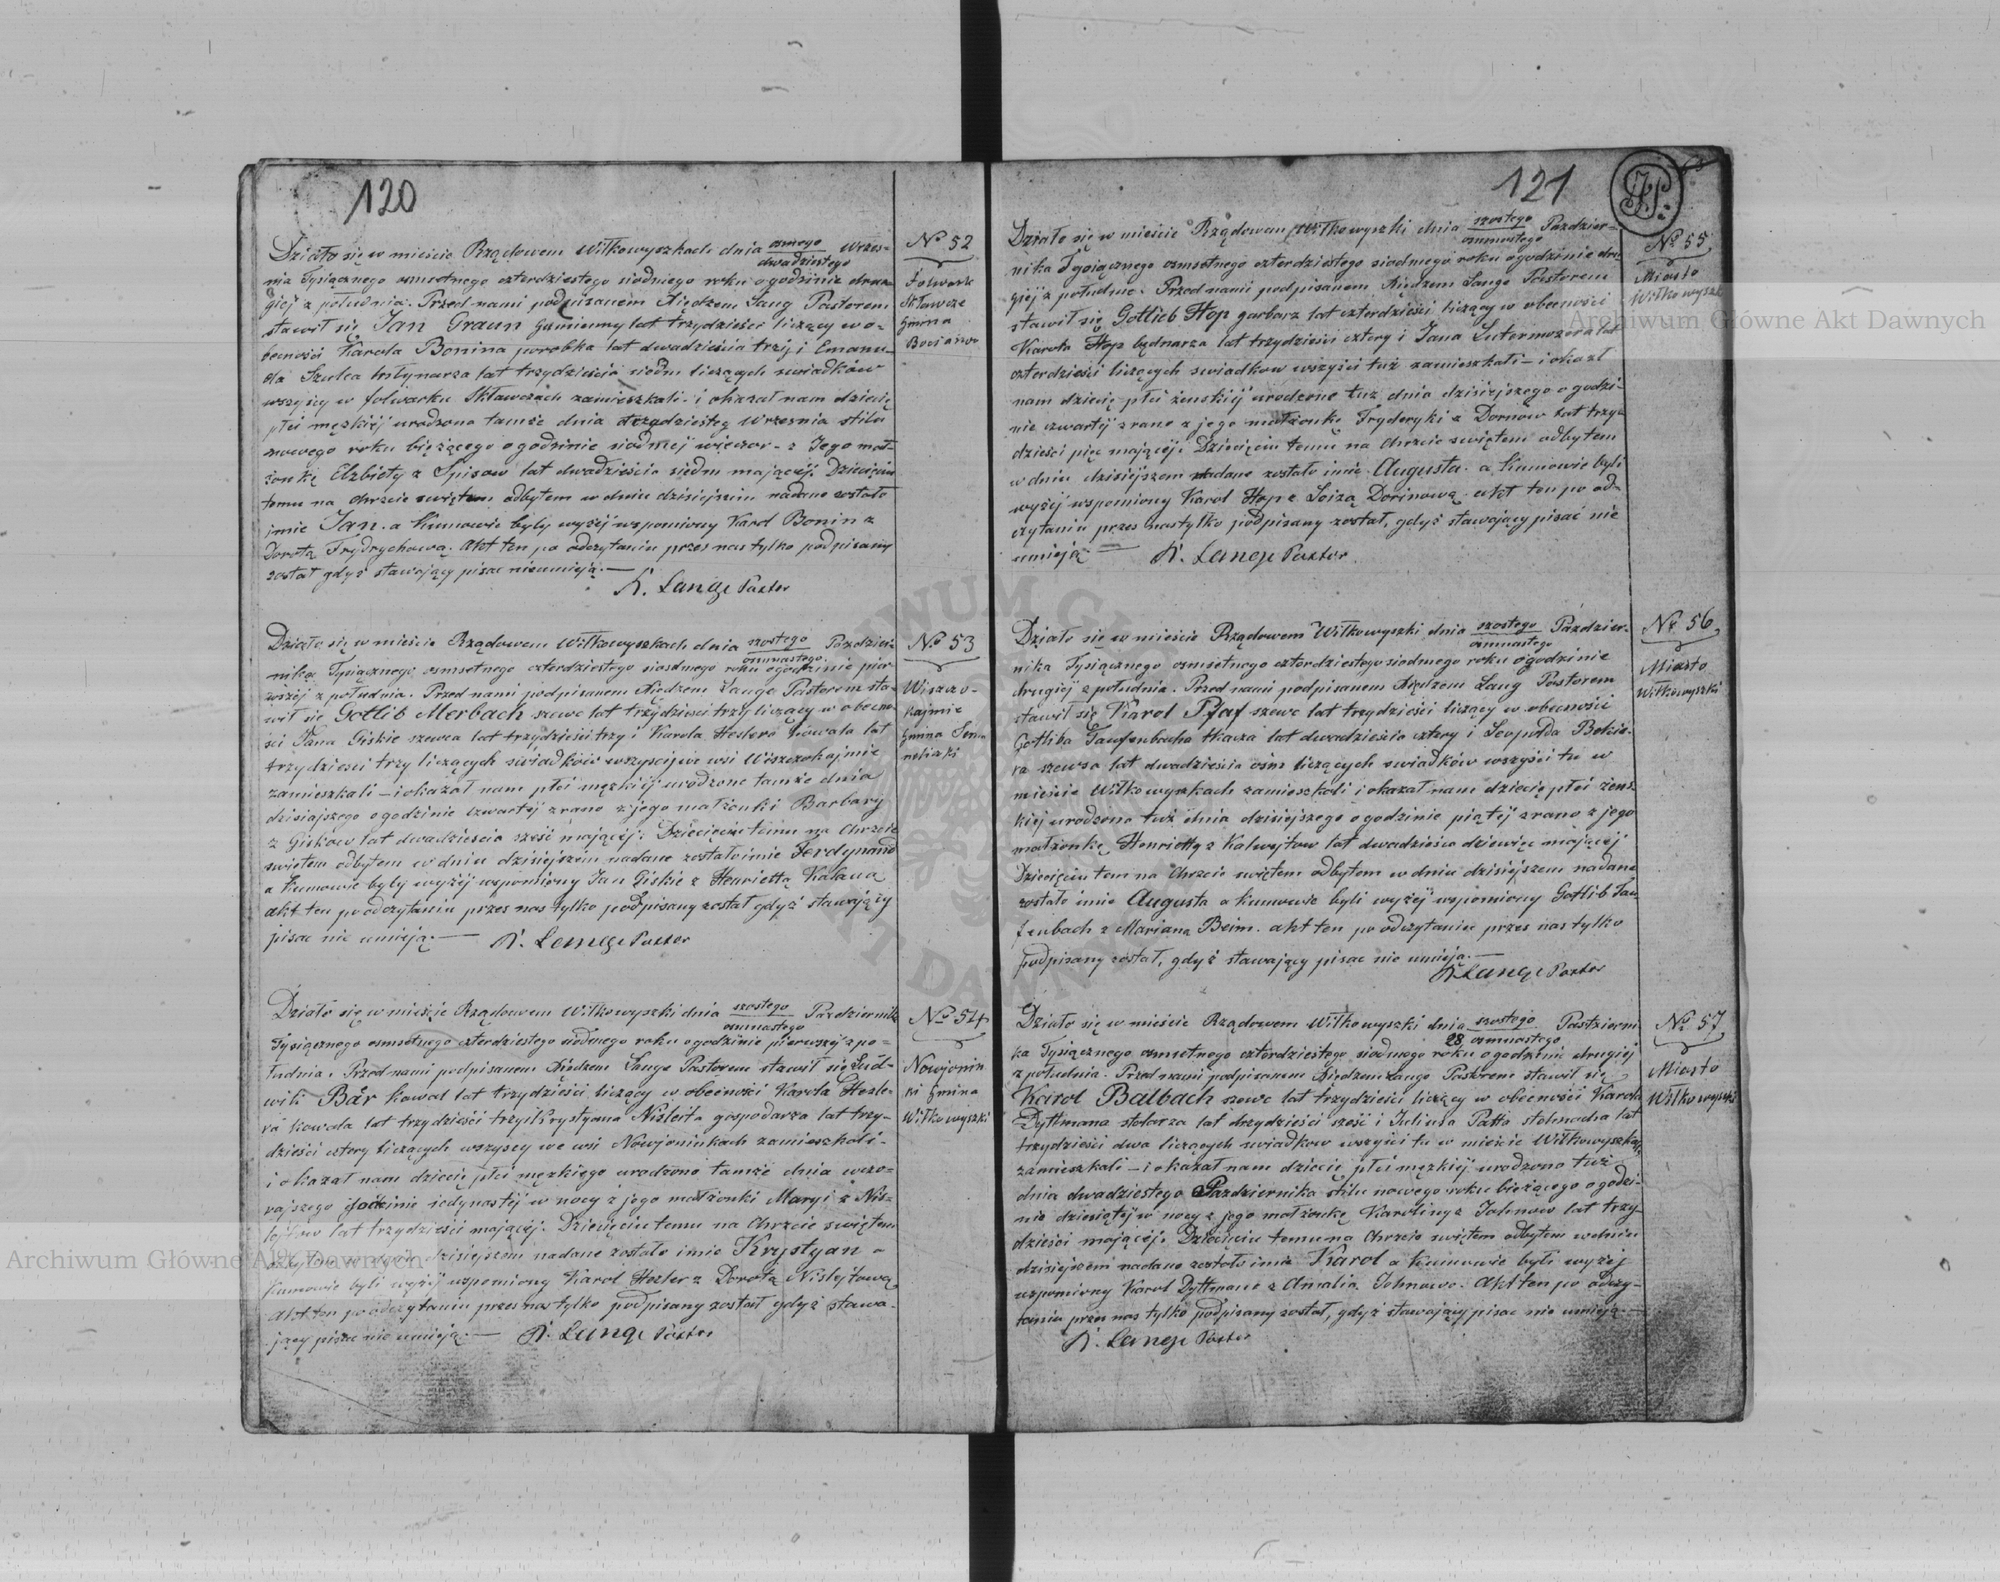 120
Działo się w mieście Rządowem Wiłkowyszkach dnia osmego/dwudziestego Wrzes-
nia Tysiącznego osmsetnego czterdziestego siodmego roku o godzinie dru-
giej z południa. Przed nami podpisanem Xiędzem Lang Pastorem
stawił się Jan Graun Gumienny lat trzydzieści liczący w o-
becności Karola Bonina parobka lat dwadzieścia trzy i Emanu-
ela Szulca młynarza lat trzydzieście siedm liczących swiadków
wszyscy w folwarku Skławczach zamieszkali - i okazał nam dziecię
płci męzkiéj urodzone tamże dnia Wrzesnia stilu
nowego roku bieżącego o godzinie siodmej wieczor - z Jego mał-
żonki Elzbiety z Spisow lat dwadzieście siedm mającéj. Dziecięciu
temu na chrzcie swiętem odbytem w dniu dzisiejszim nadane zostało
jmie Jan. a Kumowie byly wyżéj wspomiony Karol Bonin z
Dorotą Frydrychową. Akt ten po odczytaniu przez nas tylko podpisany
został gdyż stawający pisac nieumieją. —
K. Lange Pastor
No 52
Folwark
Skławcze
Gmina
Działo się w mieście Rządowem Wiłkowyszkach dnia szostego/osmnastego Pazdzier-
nika Tysiącznego osmsetnego czterdziestego siosdmego roku o godzinie pier
wszéj z południa. Przed nami podpisanem Xiędzem Lange Pastorem sta-
wił się Gotlib Merbach szewc lat trzydzieści trzy liczący w obecno
ści Jana Giskie szewca lat trzydzieści trzy i Karola Heslera kowala lat
trzydzieści trzy liczących swiadków wszyscy we wsi Wiszczokajmie
zamieszkali — i okazał nam płci męzkiéj urodzone tamże dnia
dzisiajszego o godzinie czwartéj z rana z jego małżonki Barbary
z Giskow lat dwadzieścia sześć mającéj. Dziecięciu temu na chrzcie
swiętem odbytem w dniu dzisiejszem nadane zostało imie Ferdynand
a Kumowie byly wyżéj wspomiony Jan Giskie z Henriettą Kalaua
akt ten po odczytaniu przez nas tylko podpisany został gdyż stawający
pisac nie umieją. — K. Lange Pastor
No 53
Wiszczo-
kajmie
Gmina
Działo się w mieście Rządowem Wiłkowyszki dnia szostego/osmnastego Pazdziernika
Tysiącznego osmsetnego czterdziestego siódmego roku o godzinie pierwszéj z po-
łudnia. Przed nami podpisanem Xiędzem Lange Pastorem stawił się Lud-
wik Bär kowal lat trzydzieści liczący w obecności Karola Hesle-
ra kowala lat trzydzieści trzy i Krystyana Nisleita gospodarza lat trzy-
dzieści cztery liczących wszyscy we wsi Nowjoninkach zamieszkali-
i okazał nam dziecię płci męzkiego urodzone tamże dnia wczo-
rajszego godzinie jedynastéj w nocy z jego małżonki Maryi z Nis-
lejtow lat trzydzieści mającéj. Dziecięciu temu na chrzcie swiętem
odbytem w dniu dzisiejszem nadane zostało imie Krystyan a
Kumowie byli wyżéj wspomiony Karol Hesler z Dorotą Nislejtową
akt ten po odczytaniu przez nas tylko podpisany został gdyż stawa-
jący pisac nie umieją. — K. Lange Pastor
No 54
Nowjonin
ki Gmina
Wiłkowyszki
121
Działo się w mieście Rządowem Wiłkowyszki dnia szostego/osmnastego Pazdzier-
nika Tysiącznego osmsetnego czterdziestego siodmego roku o godzinie dru
giéj z południa. Przed nami podpisanem Xiędzem Lange Pastorem
stawił się Gotlieb Hop garbarz lat czterdzieści liczący w obecności
Karola Hop będnarza lat trzydzieści cztery i Jana Lutermozera lat
czterdzieści liczących swiadkow wszyści tuż zamieszkali — i okazł
nam dziecię płci żenskiéj urodzone tuż dnia dzisiejszego o godzi-
nie czwartéj z rana z jego małżonkę Fryderyki z Dornow lat trzy-
dzieści pięć mającéj. Dziecięciu temu na chrzcie swiętem odbytem
w dniu dzisiejszem nadane zostało imie Augusta. a Kumowie byli
wyżéj wspomiony Karol Hop z Loizą Dorinową akt ten po od-
czytaniu przez nas tylko podpisany został, gdyż stawający pisać nie
umieją. — K. Lange Pastor.
No 55
Miasto
Wiłkowyszki
Działo się w mieście Rządowem Wiłkowyszki dnia szostego/osmnastego Pazdzier-
nika Tysiącznego osmsetnego czterdziestego siodmego roku o godzinie
drugiéj z południa. Przed nami podpisanem Xiędzem Lang Pastorem
stawił się Karol Pfaf szewc lat trzydzieści liczący w obecności
Gotliba Taufenbacha tkacza lat dwadzieścia cztery i Leopolda Bekie-
ra szewca lat dwadzieścia osm liczących swiadków wszyści tu w
mieście Wiłkowyszkach zamieszkali i okazał nam dziecię płci żens-
kiéj urodzona tuż dnia dzisiejszego o godzinie piątéj z rana z jego
małżonkę Henrietty z Kalwejtow lat dwadzieścia dziewięć mającéj
Dziecięciu tem na chrzcie swiętem odbytem w dniu dzisiejszem nadane
zostało imie Augusta a kumowie byli wyżéj wspomiony Gotlib Tau-
fenbach z Mariana Beim. akt ten po odczytaniu przez nas tylko
podpisany został, gdyż stawający pisac nie umieją. —
K. Lange Pastor
No 56
Miasto
Wiłkowyszki
Działo się w mieście Rządowem Wiłkowyszki dnia szostego/28 osmnastego Pastzierni
ka Tysiącznego osmsetnego czterdziestego siodmego roku o godzinie drugiéj
z południa. Przed nami podpisanem Xiędzem Lange Pastorem stawił się
Karol Balbach szewc lat trzydzieści liczący w obecności Karola
Dyttmana stolarza lat trzydzieści sześć i Juliusa Patta stelmacha lat
trzydzieści dwa liczących swiadkow wszyści tu w mieście Wiłkowyszkach
zamieszkali — i okazał nam dziecię płci męzkiéj urodzono tuż
dnia dwadziestego Pazdziernika stilu nowego roku bieżącego o godzi-
nie dziesiątéj w nocy z jego małżonkę Karoliny z Johnow lat trzy-
dzieści mającéj. Dziecięciu temu na chrzcie swiętem odbytem w dniu
dzisiejszem nadane zostało imie Karol a kumowie byli wyżéj
wspomiony Karol Dyttmann z Amalia Johnowo. Akt ten po odczy-
taniu przez nas tylko podpisany został, gdyż stawający pisac nie umieją. —
K. Lange Pastor
No 57
Miasto
Wiłkowyszki
Archiwum Główne Akt Dawnych
Archiwum Główne Akt Dawnych
ARCHIWUM GŁÓWNE AKT DAWNYCH